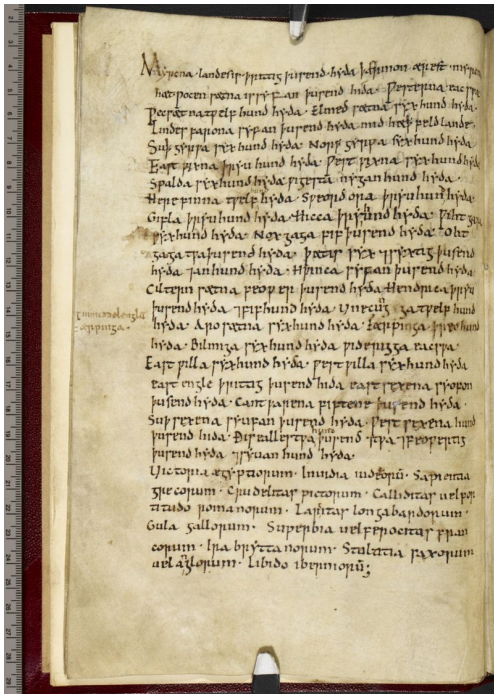 Myrcna landes is þrittig þusend hyda þær mon ærest myrcna
hæt · wocen sætna is syfan þusend hida · westerna eac swa
Pecsætna twelf hund hyda · Elmed sætna syx hund hyda ·
Lindes farona syfan þusend hyda mid hæþ feld lande ·
Suþ gyrwa syx hund hyda · Norþ gyrwa syx hund hyda ·
East wixna þryu hund hyda · west wixna syx hund hyda
Spalda syx hund hyda · wigesta nygan hund hyda ·
Herefinna twelf hund hyda · Sweord ora þryu hund hyda
Gifla þryu hund hyda · Hicca þryu hund hyda · wiht gara
syx hund hyda · Nox gaga fif þusend hyda · Oht
gaga twa þusend hyda · þæt is syx ⁊ syxtig þusend
hyda ⁊ an hund hyda · Hwinca syfan þusend hyda ·
Ciltern sætna feower þusend hyda · Hendrica þryu
þusend hyda ⁊ fif hund hyda · Unecūg ga twelf hund
hyda · Aro sætna syx hund hyda · Færpinga þreo hund
in middelenglū
færpinga ·
hyda · Bilmiga syx hund hyda · widerigga eac swa ·
East willa syx hund hyda · west willa syx hund hyda
east engle þrittig þusend hida · east sexena syofon
þusend hyda · Cantwarena fiftene þusend hyda ·
Suþ sexena syufan þusend hyda · west sexena hund
þusend hida · Ðis ealles twa hund þusend ⁊ twa ⁊ feowertig
þusend hyda ⁊ syuan hund hyda ·
Victoria ægyptiorum · Inuidia iudeorū · Sapientia
grecorum · Crudelitas pictorum · Calliditas uel for
titudo romanorum · Largitas longabardorum ·
Gula gallorum · Superbia uel ferocitas fran
corum · Ira bryttanorum · Stultitia saxorum
uel anglorum · Libido iberniorū ;